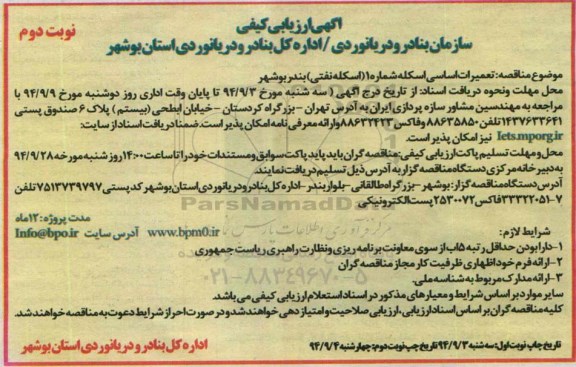 آگهی ارزیابی کیفی
نوبت دوم
سازمان بنادر و دریانوردی / اداره کل بنادر و دریانوردی استان بوشهر
موضوع مناقصه: تعمیرات اساسی اسکله شماره ۱ (اسکله نفتی) بندر بوشهر
محل مهلت ونحوه دریافت اسناد: از تاریخ درج آگهی ( سه شنبه مورخ ۹۴/۹/۳ تا پایان وقت اداری روز دوشنبه مورخ ۹۴/۹/۹ با
مراجعه به مهندسین مشاور سازه پردازی ایران به آدرس تهران - بزرگراه کردستان - خیابان ابطحی (بیستم ) پلاک ۶ صندوق پستی
۱۴۳۷۶۳۳۶۴۱ تلفن ۸۸۶۳۵۸۵۰ وفاکس ۸۸۶۳۳۴۲۳ وارائه معرفی نامه امکان پذیر است. ضمنا دریافت اسناد از سایت:
Iets.mporg.ir نیز امکان پذیر است.
محل ومهلت تسلیم پاکت ارزیابی کیفی: مناقصه گران باید پاید پاکت سوابق ومستندات خود را تا ساعت ۱۴:۰۰ روز شنبه مورخه ۹۴/۹/۲۸
به دبیرخانه مرکزی دستگاه مناقصه گزار به آدرس ذیل تسلیم دریافت نمایند.
آدرس دستگاه مناقصه گزار: بوشهر - بزرگراه طالقانی - بلوار بندر - اداره کل بنادر و دریانوردی استان بوشهر کد پستی ۷۵۱۳۷۳۹۷۹۷ تلفن
۷-۳۳۳۲۲۰۵۱ فاکس ۲۵۳۰۰۷۲ پست الکترونیکی
www.bpm0.ir آدرس سایت Info@bpo.ir
مدت پروژه: ۱۲ ماه
شرایط لازم:
۱- دارا بودن حداقل رتبه ۵ آب از سوی معاونت برنامه ریزی و نظارت راهبری ریاست جمهوری
۲- ارائه فرم خود اظهاری ظرفیت کار مجاز مناقصه گران
۳- ارائه مدارک مربوط به شناسه ملی.
سایر موارد بر اساس شرایط و معیارهای مذکور در اسناد استعلام ارزیابی کیفی می باشد.
کلیه مناقصه گران بر اساس اسناد ارزیابی، ارزیابی صلاحیت و امتیاز دهی خواهند شد و در صورت احراز شرایط دعوت به مناقصه خواهند شد.
تاریخ چاپ نوبت اول: سه شنبه ۹۴/۹/۳ تاریخ چاپ نوبت دوم: چهارشنبه ۹۴/۹/۴
اداره کل بنادر و دریانوردی استان بوشهر
ParsNamadData
۰۲۱-۸۸۳۴۹۶۷۰-۵